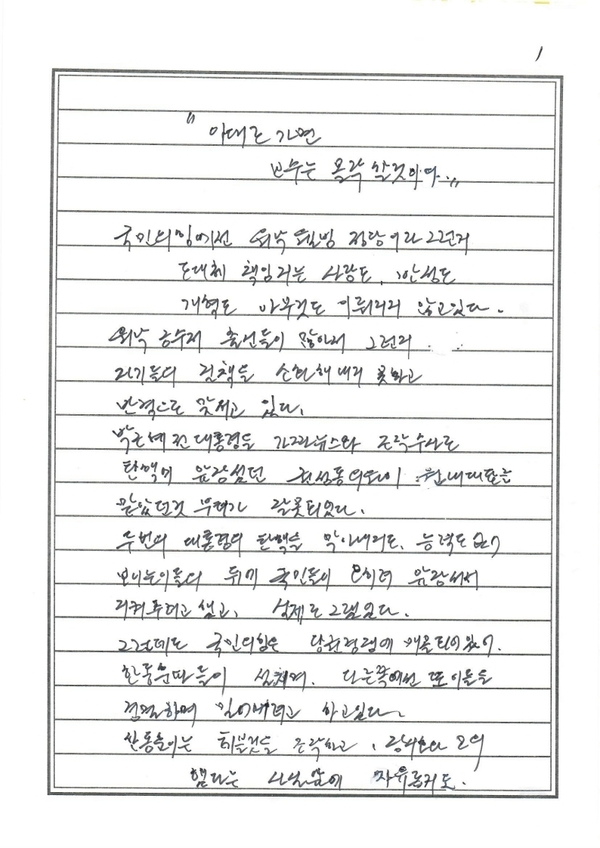 1
"이대로 가면
보수는 몰락 할것이다."
국민의힘에선 워낙 웰빙 정당이라 그런지
도대체 책임지는 사람도, 반성도
개혁도 아무것도 이뤄지지 않고있다.
워낙 공수처 출신들이 많아서 그런지
자기들의 정책을 순화해내지 못하고
변칙으로 맞서고 있다.
박근혜 전대통령을 가짜뉴스와 조작수사로
탄핵에 앞장섰던 권성동의원이 원내대표를
맡았던것 부터가 잘못되었다.
두번의 대통령의 탄핵을 막아내지도, 능력도 없고
보니 이들의 뒤에 국민들이 오히려 앞장서서
지켜주려고 했고, 실제로 그랬었다.
그런데도 국민의힘은 당권경쟁에 매몰되어있고
한동훈파들이 설치며, 다른쪽에선 또 이들을
견제하며 밀어내려고 하고있다.
한동훈이는 태블릿을 조작하고,
했다는 사실앞에 자유롭지도.